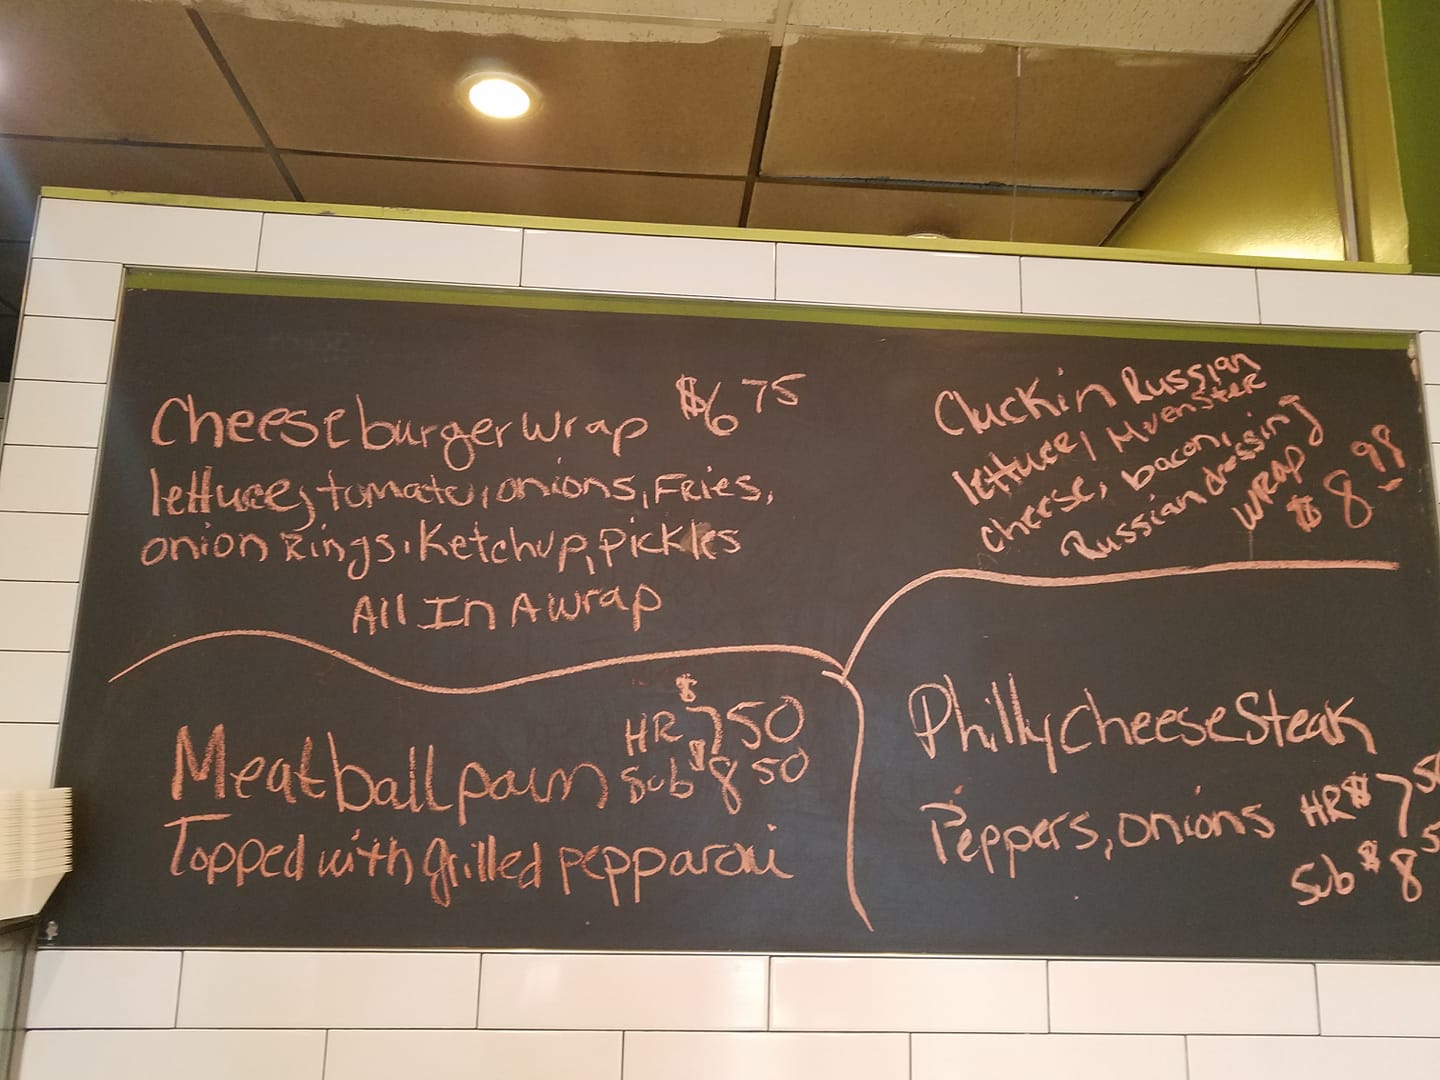 Cheeseburger Wrap $6 75
lettuce, tomato, onions, Fries,
onion Rings, Ketchup, pickles
All In A wrap
Cluckin Russian
lettuce, Muenster
cheese, bacon,
Russian dressing
WRAP
$8 98
Meatball parm HR $7 50
Sub $8 50
Topped with grilled pepparoni
Philly Cheese Steak
Peppers, onions HR $7 50
Sub $8 5